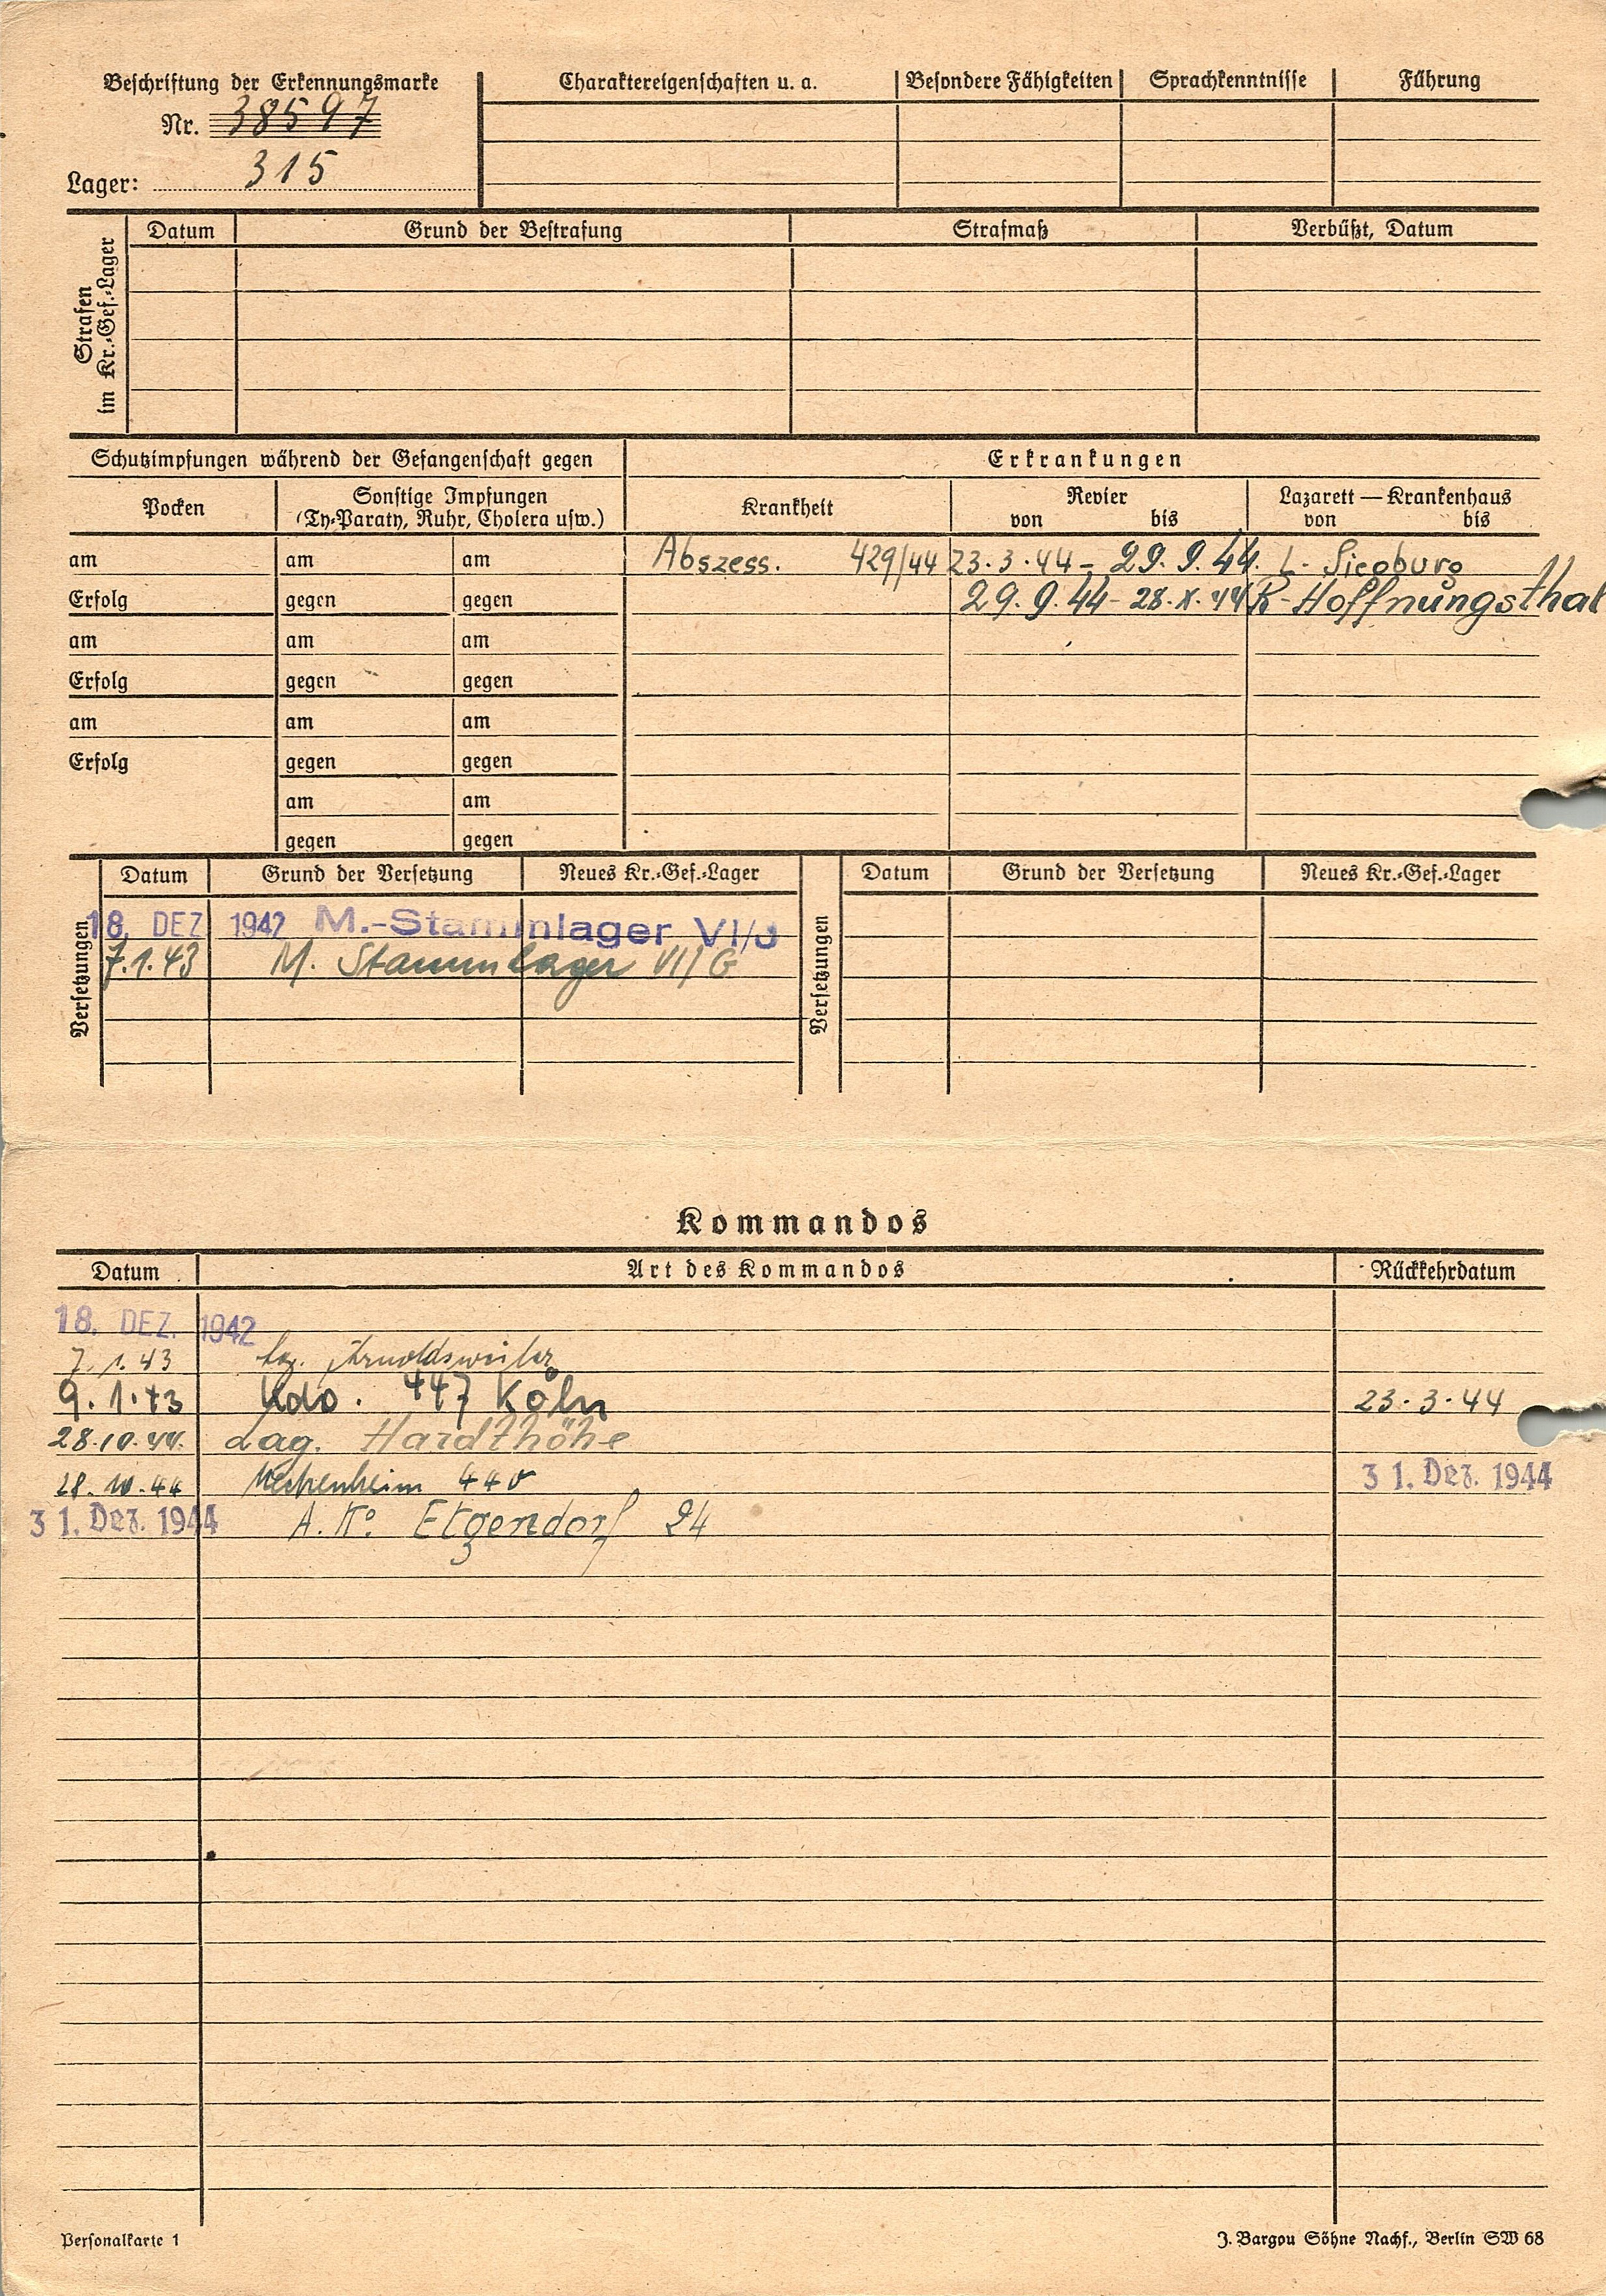 Beschriftung der Erkennungsmarke
Nr. 38597
Lager: 315
Charaktereigenschaften u. a.
Besondere Fähigkeiten
Sprachkenntnisse
Führung
Strafen im Kr.-Gef.-Lager
Datum
Grund der Bestrafung
Strafmaß
Verbüßt, Datum
Schutzimpfungen während der Gefangenschaft gegen
Erkrankungen
Pocken
Sonstige Impfungen
(Ty-Paraty, Ruhr, Cholera usw.)
Krankheit
Revier
von bis
Lazarett — Krankenhaus
von bis
am am am Abszess. 429/44 23.3.44 - 29.9.44. L. Siegburg
Erfolg gegen gegen 29.9.44 - 28.X.44 R-Hoffnungsthal
am am am
Erfolg gegen gegen
am am am
Erfolg gegen gegen
am am
gegen gegen
Versetzungen
Datum Grund der Versetzung Neues Kr.-Gef.-Lager
18. DEZ. 1942 M.-Stammlager VI/J
7.1.43 M. Stammlager VI/G
Versetzungen
Datum Grund der Versetzung Neues Kr.-Gef.-Lager
Kommandos
Datum Art des Kommandos Rückkehrdatum
18. DEZ. 1942
7.1.43 Arnoldsweiler
9.1.43 Kdo. 447 Köln 23.3.44
28.10.44. Lag. Hardthöhe
28.10.44 Meckenheim 440 31. Dez. 1944
31. Dez. 1944 A.Ko. Etgendorf 24
Personalkarte 1
J. Bargou Söhne Nachf., Berlin SW 68